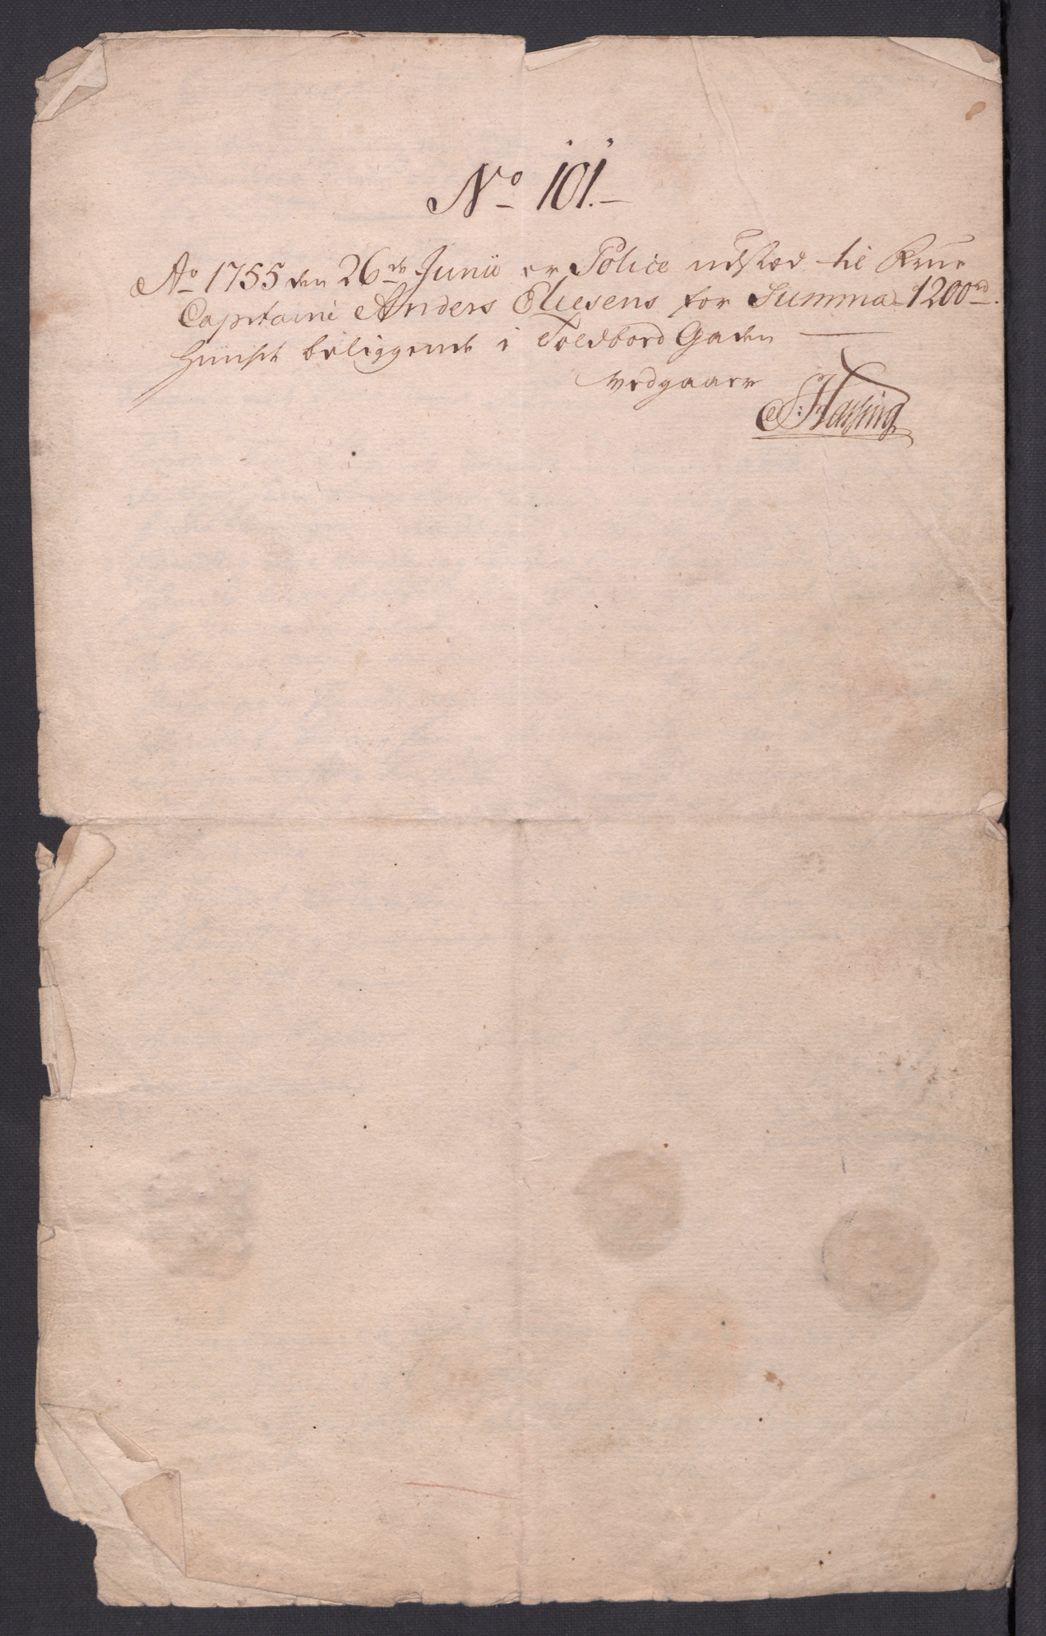 No 101.
Ao 1755 den 26de Junii er Police udsted til Frue
Capitaine Anders Eliesens for Summa 1200 rd.
Huuset beliggende i Toldbord Gaden
Vedgaaer
Hassing